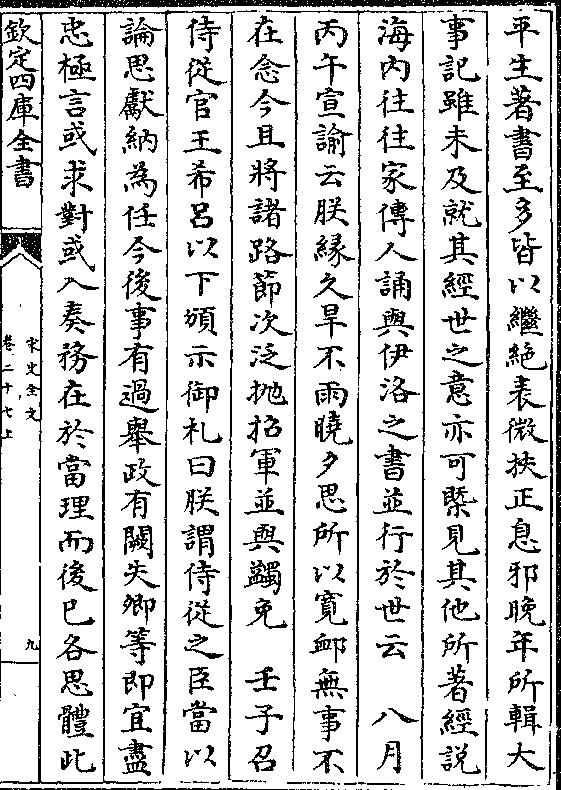 平生著書至多皆以繼絶表微扶正息邪晚年所輯大
事記雖未及就其經世之意亦可槩見其他所著經説
海内往往家傳人誦與伊洛之書並行於世云　八月
丙午宣諭云朕縁久旱不雨曉夕思所以寛䘏無事不
在念今且將諸路節次泛抛招軍並與蠲免　壬子召
侍從官王希吕以下頒示御札曰朕謂侍從之臣當以
論思獻納為任今後事有過舉政有闕失卿等即宜盡
忠極言或求對或入奏務在於當理而後已各思體此
欽定四庫全書
宋史全文
卷二十七上
九